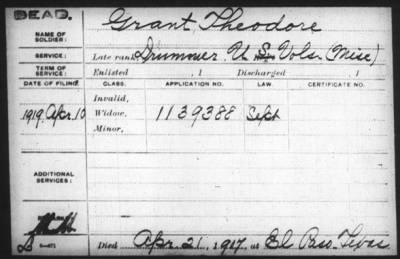 DEAD.
NAME OF SOLDIER: Grant, Theodore
SERVICE: Late rank Drummer, U.S. Vols. (Misc)
TERM OF SERVICE: Enlisted , 1 Discharged , 1
DATE OF FILING. CLASS. APPLICATION NO. LAW. CERTIFICATE NO.
Invalid,
1919, Apr. 10 Widow, 1139388 Sept
Minor,
ADDITIONAL SERVICES:
Died Apr. 21, 1917, at El Paso Texas